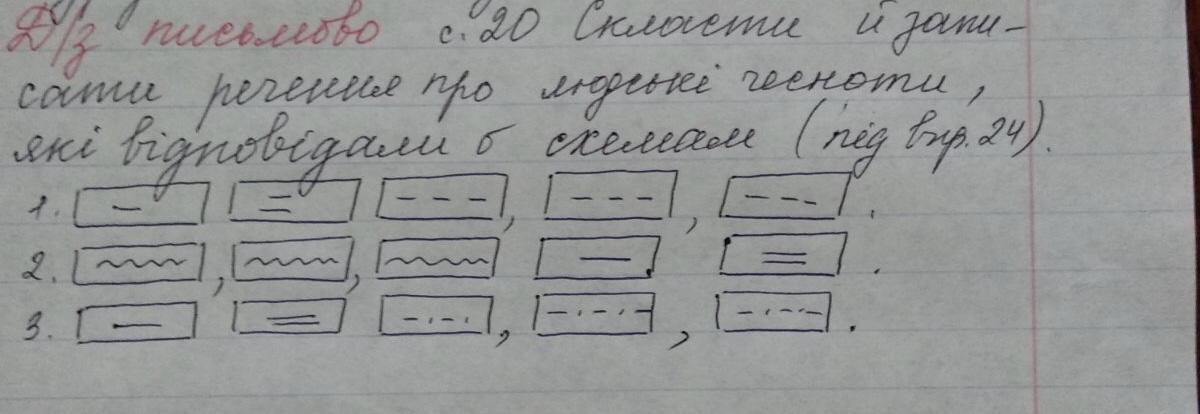 Д/з письмово с. 20 Скласти й запи-
сати речення про людські чесноти,
які відповідали б схемам (під впр. 24).
1. , , .
2. , , .
3. , , .